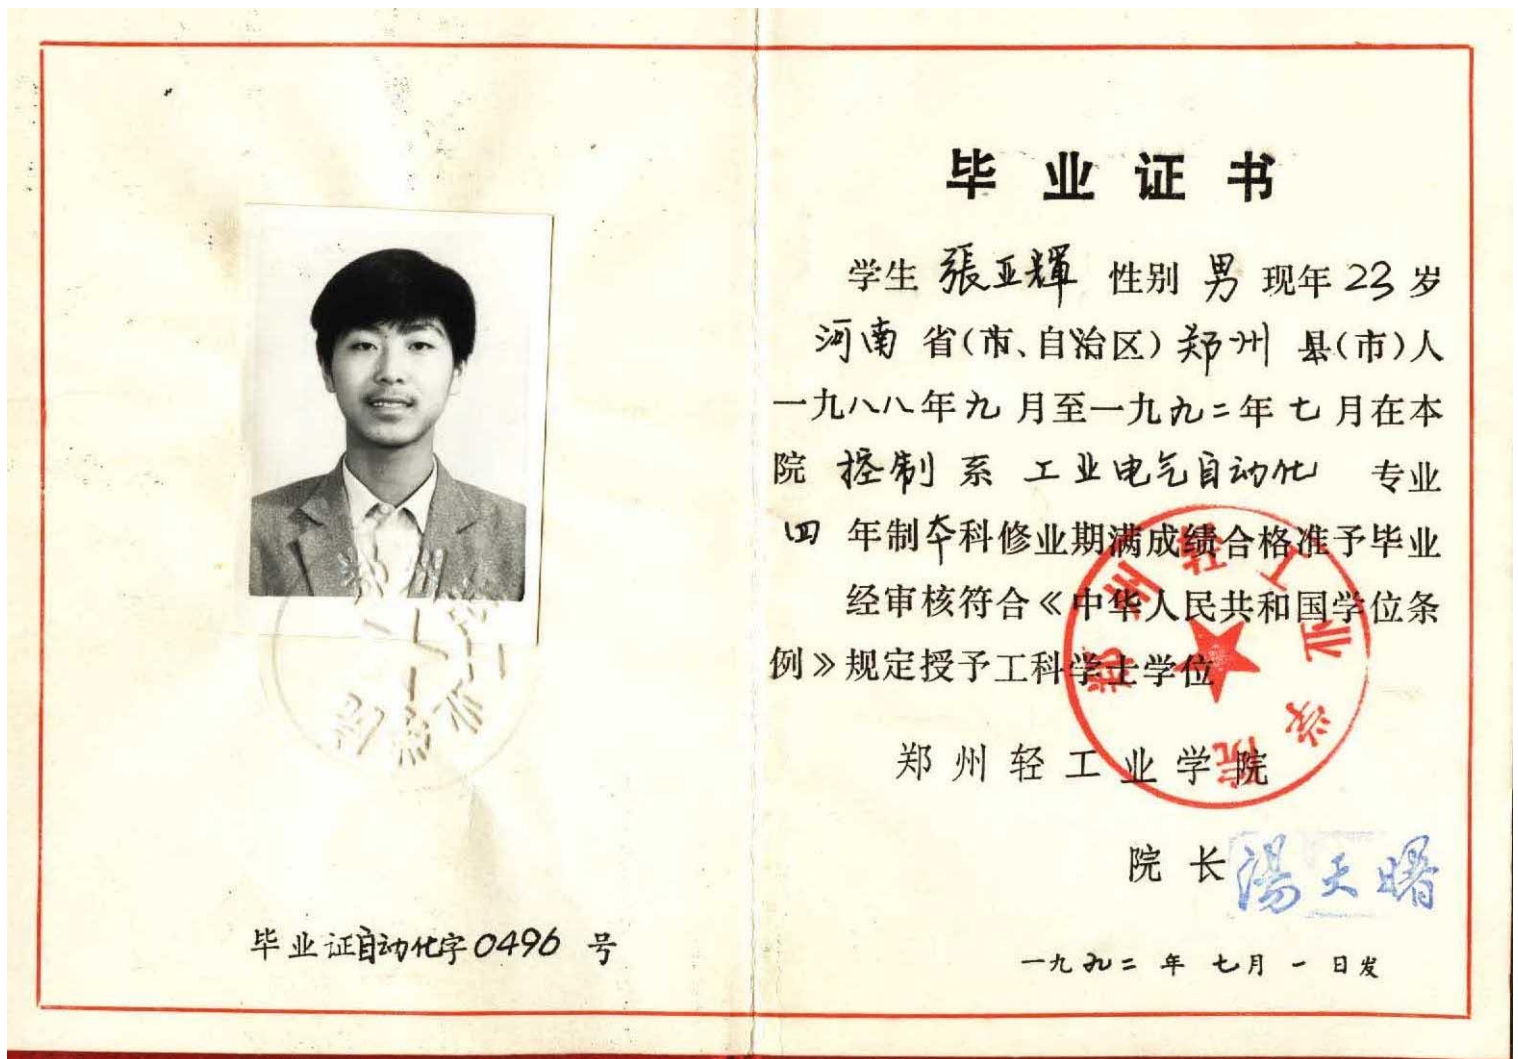 毕业证自动化字0496号
毕业证书
学生 張亚輝 性别 男 现年 23 岁
河南 省(市、自治区) 郑州 县(市)人
一九八八年九月至一九九二年七月在本
院 控制 系 工业电气自动化 专业
四 年制本科修业期满成绩合格准予毕业
经审核符合《中华人民共和国学位条
例》规定授予工科学士学位
郑州轻工业学院
郑州轻工业学院
院长 湯天曙
一九九二年七月一日发